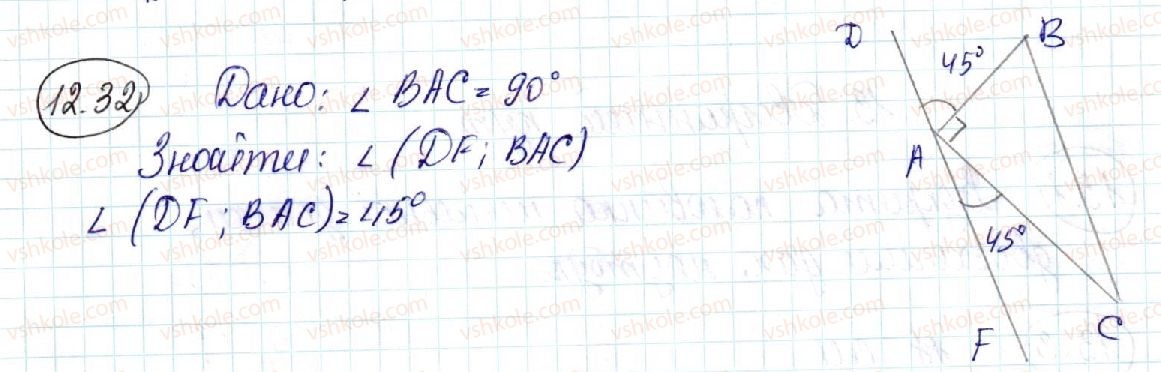 12.32 Дано: ∠ BAC = 90°
Знайти: ∠ (DF ; BAC)
∠ (DF ; BAC) = 45°
D
45°
B
A
45°
F
C
vshkole.com